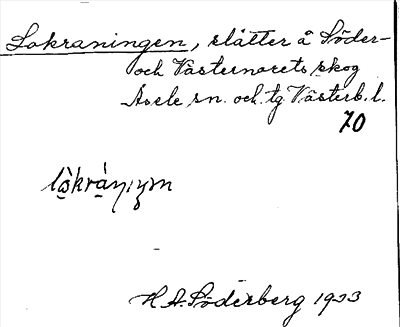 Lokraningen, slåtter å Söder-
och Västernorets skog
Åsele sn. och tg Västerb. l.
70
H A. Söderberg 1933